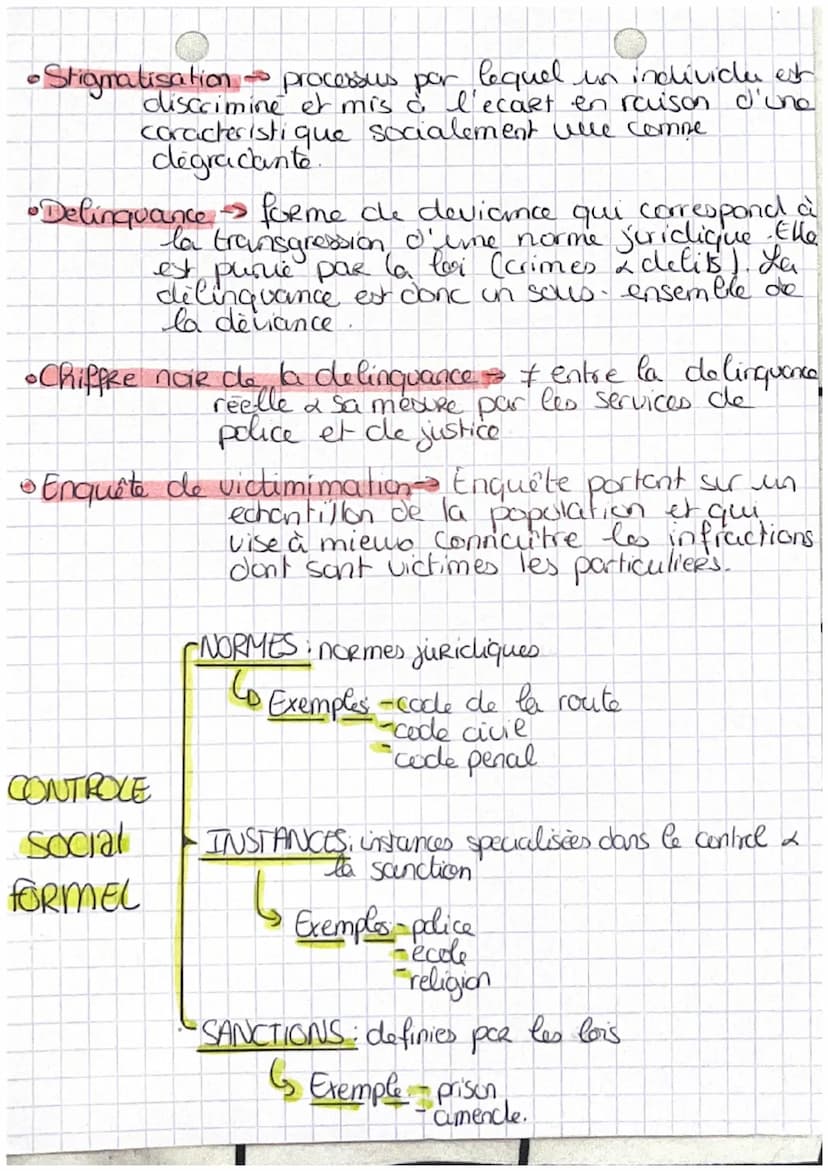 • Stigmatisation → processus par lequel un individu est
discriminé et mis à l'ecart en raison d'une
caracteristique socialement vue comme
dégradante.
• Delinquance → forme de deviance qui correspond à
la transgression d'une norme juridique. Elle
est punie par la loi (crimes & delits). La
délinquance est donc un sous-ensemble de
la déviance.
• Chiffre noir de la delinquance → ≠ entre la delinquance
réelle & sa mesure par les services de
police et de justice
• Enquête de victimimation → Enquête portant sur un
echantillon de la population et qui
vise à mieux connaitre les infractions
dont sont victimes les particuliers.
NORMES : normes juridiques
↳ Exemples - code de la route
- code civil
- code penal
CONTROLE
SOCIAL
FORMEL
INSTANCES : instances specialisées dans le control &
la sanction
↳ Exemples - police
- ecole
- religion
SANCTIONS : definies par les lois
↳ Exemple - prison
- amende.